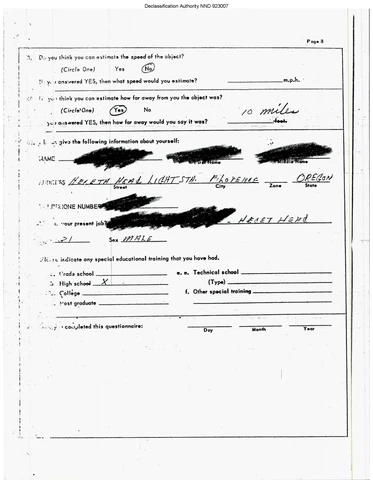 Declassification Authority NND 923007
Page 8
Do you think you can estimate the speed of the object?
(Circle One) Yes No
you answered YES, then what speed would you estimate? m.p.h.
you think you can estimate how far away from you the object was?
(Circle One) Yes No
you answered YES, then how far away would you say it was? 10 miles feet.
give the following information about yourself:
NAME
ADDRESS HECETA HEAD LIGHT STA. FLORENCE OREGON
Street City Zone State
TELEPHONE NUMBER
your present job? HECET HEAD
Sex MALE
indicate any special educational training that you have had.
Grade school e. Technical school
High school X (Type)
College f. Other special training
Post graduate
you completed this questionnaire:
Day Month Year